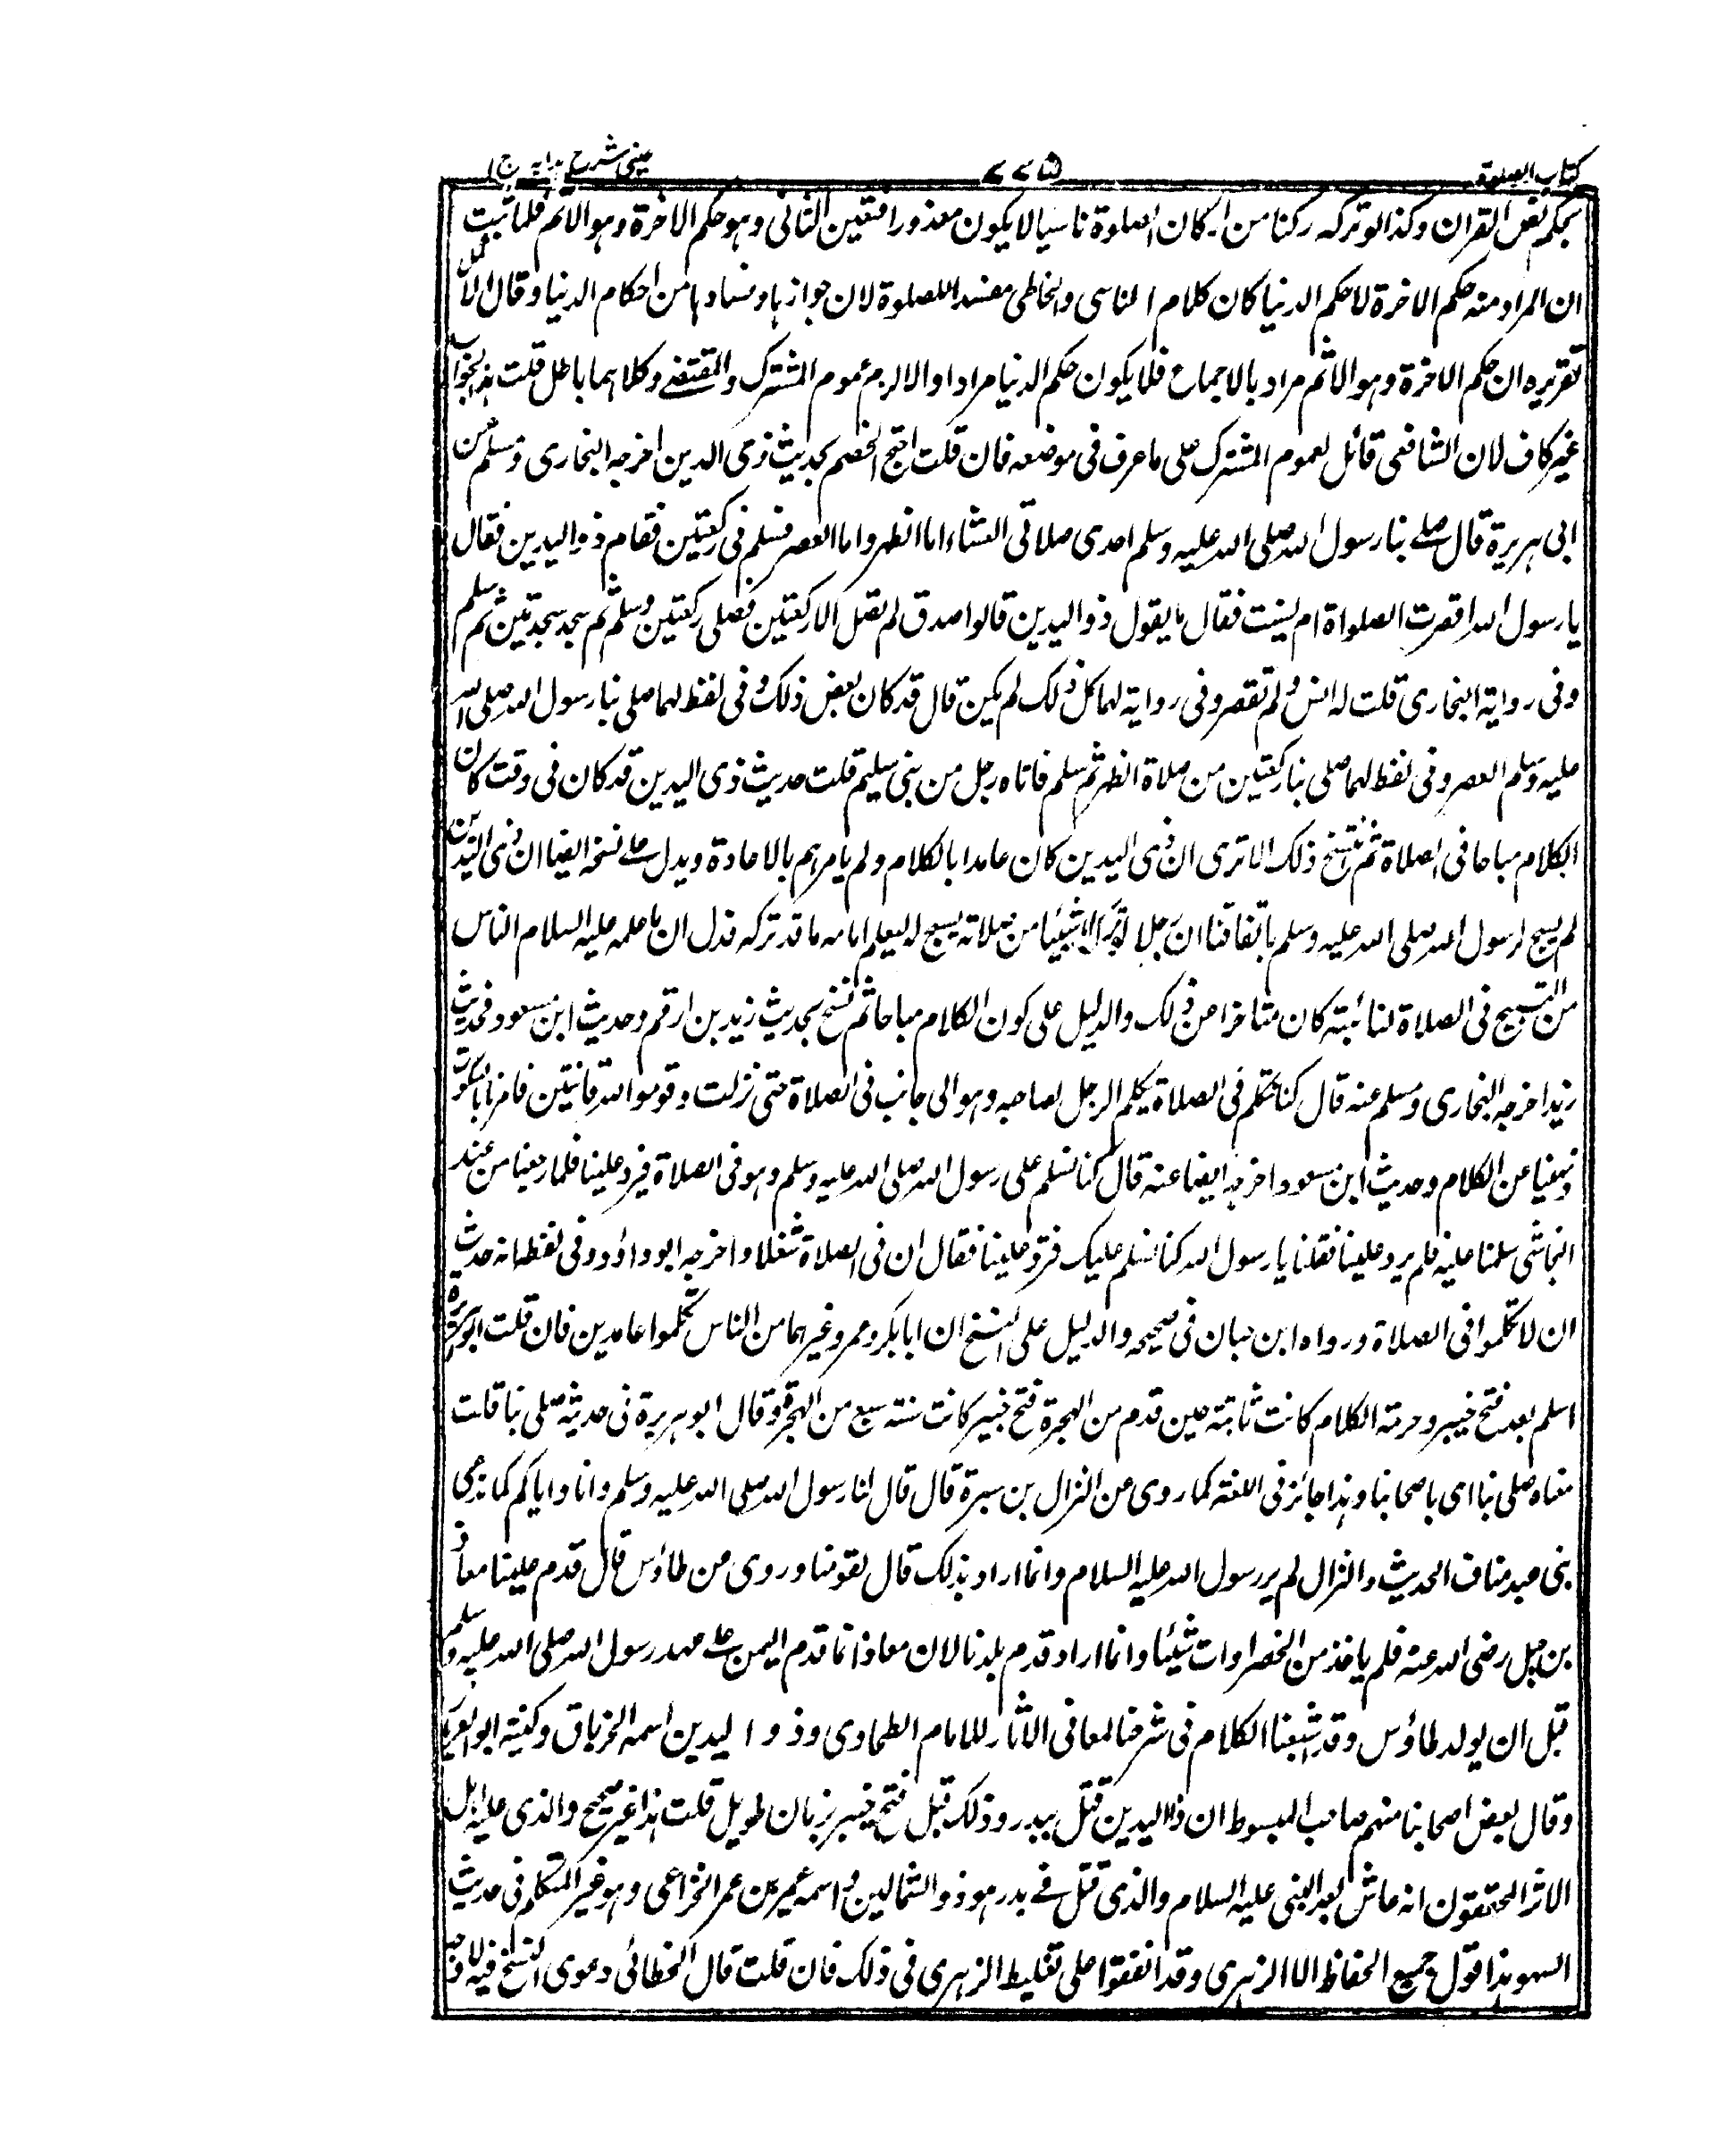 كتاب الصلوة
٧٧٥
عینی شرح ہدایہ ج ا
بحكم نص القران وكذا لو تركه ركنا من اركان الصلوة ناسيا لا يكون معذورا فتعين الثانى وهو حكم الاخرة وهو الاثم فلما ثبت
ان المراد منه حكم الاخرة لا حكم الدنيا كان كلام الناسى والخاطى مفسدا للصلوة لان جوازها وفسادها من احكام الدنيا وقال الاكمل
تقريره ان حكم الاخرة وهو الاثم مراد بالاجماع فلا يكون حكم الدنيا مرادا والا لزم عموم المشترك والمقتضى وكلاهما باطل قلت هذا الجواب
غير كاف لان الشافعى قائل لعموم المشترك على ما عرف فى موضعه فان قلت احتج الخصم بحديث ذى اليدين اخرجه البخارى ومسلم عن
ابى هريرة قال صلى بنا رسول الله صلى الله عليه وسلم احدى صلاتى العشاء اما الظهر واما العصر فسلم فى ركعتين فقام ذو اليدين فقال
يا رسول الله اقصرت الصلواة ام نسيت فقال ما يقول ذو اليدين قالوا صدق لم تصل الا ركعتين فصلى ركعتين وسلم ثم سجد سجدتين ثم سلم
وفى رواية البخارى قلت له انس ولم تقصر وفى رواية لهما كل ذلك لم يكن قال قد كان بعض ذلك وفى لفظ لهما صلى بنا رسول الله صلى الله
عليه وسلم العصر وفى لفظ لهما صلى بنا ركعتين من صلاة الظهر ثم سلم فاتاه رجل من بنى سليم قلت حديث ذى اليدين قد كان فى وقت كان
الكلام مباحا فى الصلاة ثم نسخ ذلك الا ترى ان ذى اليدين كان عامدا بالكلام ولم يامرهم بالاعادة ويدل على نسخه ايضا ان ذى اليدين
لم يسبح لرسول الله صلى الله عليه وسلم باتفاقنا ان رجلا لو ترك الامام شيئا من صلاته يسبح له ليعلم امامه ما قد تركه فدل ان ما علمه عليه السلام الناس
من التسبيح فى الصلاة لنائبته كان متاخرا عن ذلك والدليل على كون الكلام مباحا ثم نسخ بحديث زيد بن ارقم وحديث ابن مسعود فحديث
زيد اخرجه البخارى ومسلم عنه قال كنا نتكلم فى الصلاة يكلم الرجل لصاحبه وهو الى جانب فى الصلاة حتى نزلت وقوموا لله قانتين فامرنا بالسكوت
ونهينا عن الكلام وحديث ابن مسعود اخرجه ايضا عنه قال كنا نسلم على رسول الله صلى الله عليه وسلم وهو فى الصلاة فيرد علينا فلما رجعنا من عند
النجاشى سلمنا عليه فلم يرد علينا فقلنا يا رسول الله كنا نسلم عليك فترد علينا فقال ان فى الصلاة شغلا واخرجه ابو داؤد وفى لفظ انه حديث
ان لا تكلموا فى الصلاة ورواه ابن حبان فى صحيحه والدليل على النسخ ان ابا بكر وعمر وغيرهما من الناس تكلموا عامدين فان قلت ابو هريرة
اسلم بعد فتح خيبر وحرمة الكلام كانت ثابتة حين قدم من الهجرة فتح خيبر كانت سنة سبع من الهجرة وقال ابو هريرة فى حديثه صلى بنا قلت
معناه صلى بنا اى باصحابنا وهذا جائز فى اللغة كما روى عن النزال بن سبرة قال قال لنا رسول الله صلى الله عليه وسلم وانا واياكم كنا ندعى
بنى عبد مناف الحديث والنزال لم ير رسول الله عليه السلام وانما اراد بذلك قال لقومنا وروى من طاؤس قال قدم علينا معاذ
بن جبل رضى الله عنه فلم ياخذ من الخضراوات شيئا وانما اراد قدم بلدنا لان معاذا انما قدم اليمن على عهد رسول الله صلى الله عليه وسلم
قبل ان يولد طاؤس وقد اشبعنا الكلام فى شرحنا لمعانى الآثار للامام الطحاوى وذو اليدين اسمه الخرباق وكنيته ابو العريان
وقال بعض اصحابنا منهم صاحب المبسوط ان ذا اليدين قتل ببدر وذلك قبل فتح خيبر بزمان طويل قلت هذا غير صحيح والذى عليه اهل
الاثر المحققون انه عاش بعد النبى عليه السلام والذى قتل فى بدر هو ذو الشمالين واسمه عمير بن عمر الخزاعى وهو غير المتكلم فى حديث
السهو هذا قول جميع الحفاظ الا الزهرى وقد اتفقوا على تغليط الزهرى فى ذلك فان قلت قال الخطابى دعوى النسخ فيه لا وجه